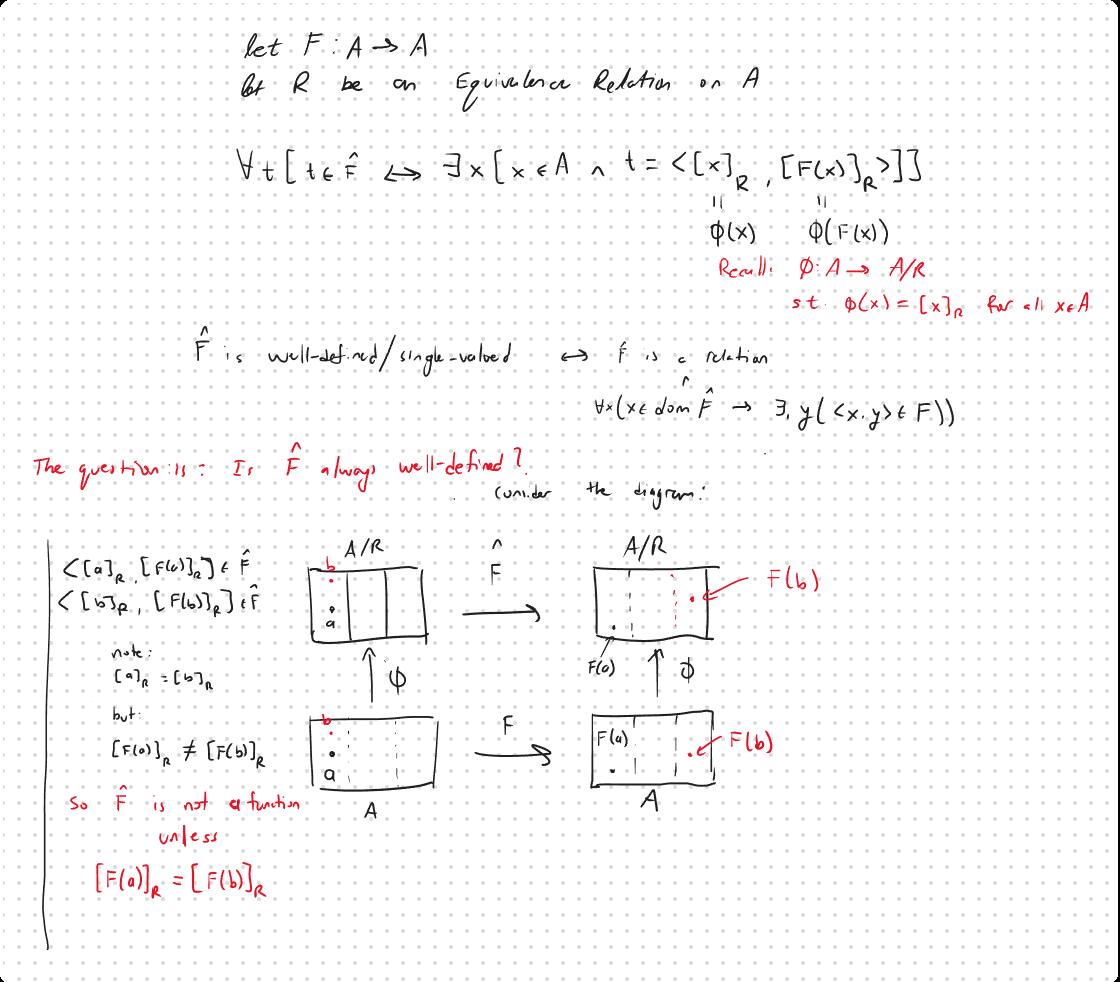 let F : A → A
let R be an Equivalence Relation on A
∀t[t ∈ F̂ ↔ ∃x[x ∈ A ∧ t = <[x]_R , [F(x)]_R>]]
ϕ(x) ϕ(F(x))
Recall: ϕ: A → A/R
s.t. ϕ(x) = [x]_R for all x∈A
F̂ is well-defined/single-valued ↔ F̂ is a relation
∧
∀x(x∈ dom F̂ → ∃₁ y(<x,y> ∈ F))
The question is: Is F̂ always well-defined?
Consider the diagram:
<[a]_R, [F(a)]_R] ∈ F̂
<[b]_R, [F(b)]_R] ∈ F̂
note:
[a]_R = [b]_R
but:
[F(a)]_R ≠ [F(b)]_R
So F̂ is not a function
unless
[F(a)]_R = [F(b)]_R
A/R
b
a
F̂
A/R
F(b)
F(a)
ϕ
ϕ
b
a
A
F
F(a)
F(b)
A